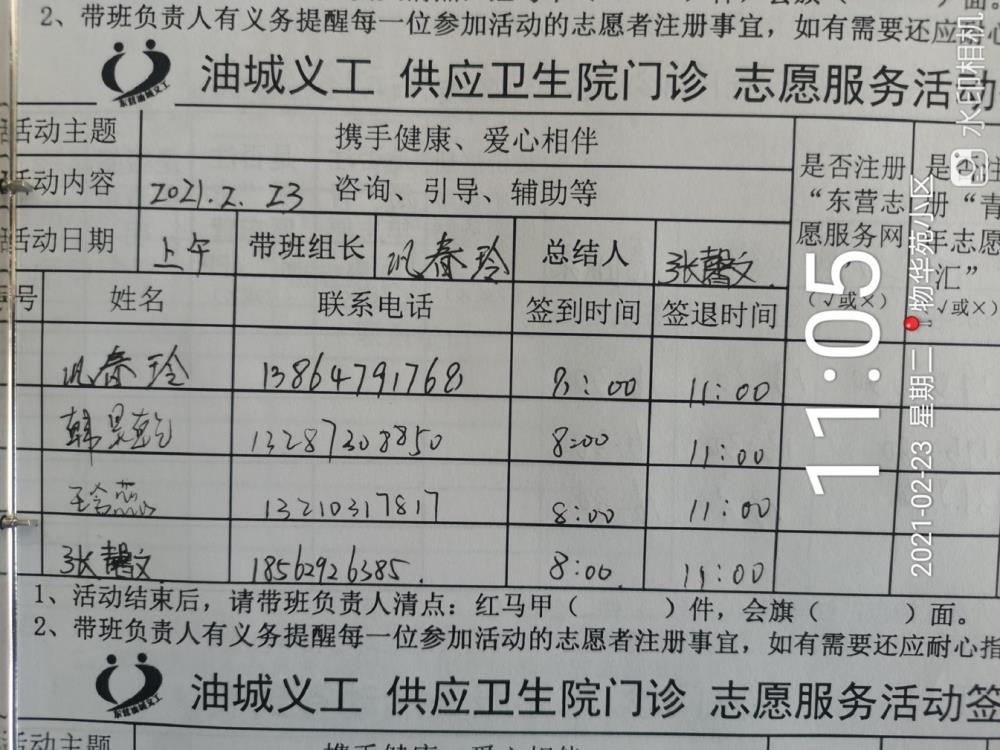 2、带班负责人有义务提醒每一位参加活动的志愿者注册事宜，如有需要还应耐心
油城义工 供应卫生院门诊 志愿服务活动
东营油城义工
活动主题 携手健康、爱心相伴
活动内容 2021.2.23 咨询、引导、辅助等
是否注册“东营志愿服务网”（√或×）
活动日期 上午 带班组长 巩春玲 总结人 张馨文
姓名 联系电话 签到时间 签退时间
巩春玲 13864791768 8:00 11:00
韩昊乾 13287308850 8:00 11:00
13210317817 8:00 11:00
张馨文 18562926385 8:00 11:00
1、活动结束后，请带班负责人清点：红马甲（ ）件，会旗（ ）面。
2、带班负责人有义务提醒每一位参加活动的志愿者注册事宜，如有需要还应耐心指
油城义工 供应卫生院门诊 志愿服务活动签
东营油城义工
活动主题 携手健康、爱心相伴
水印相机
11:05
物华苑小区
2021-02-23 星期二